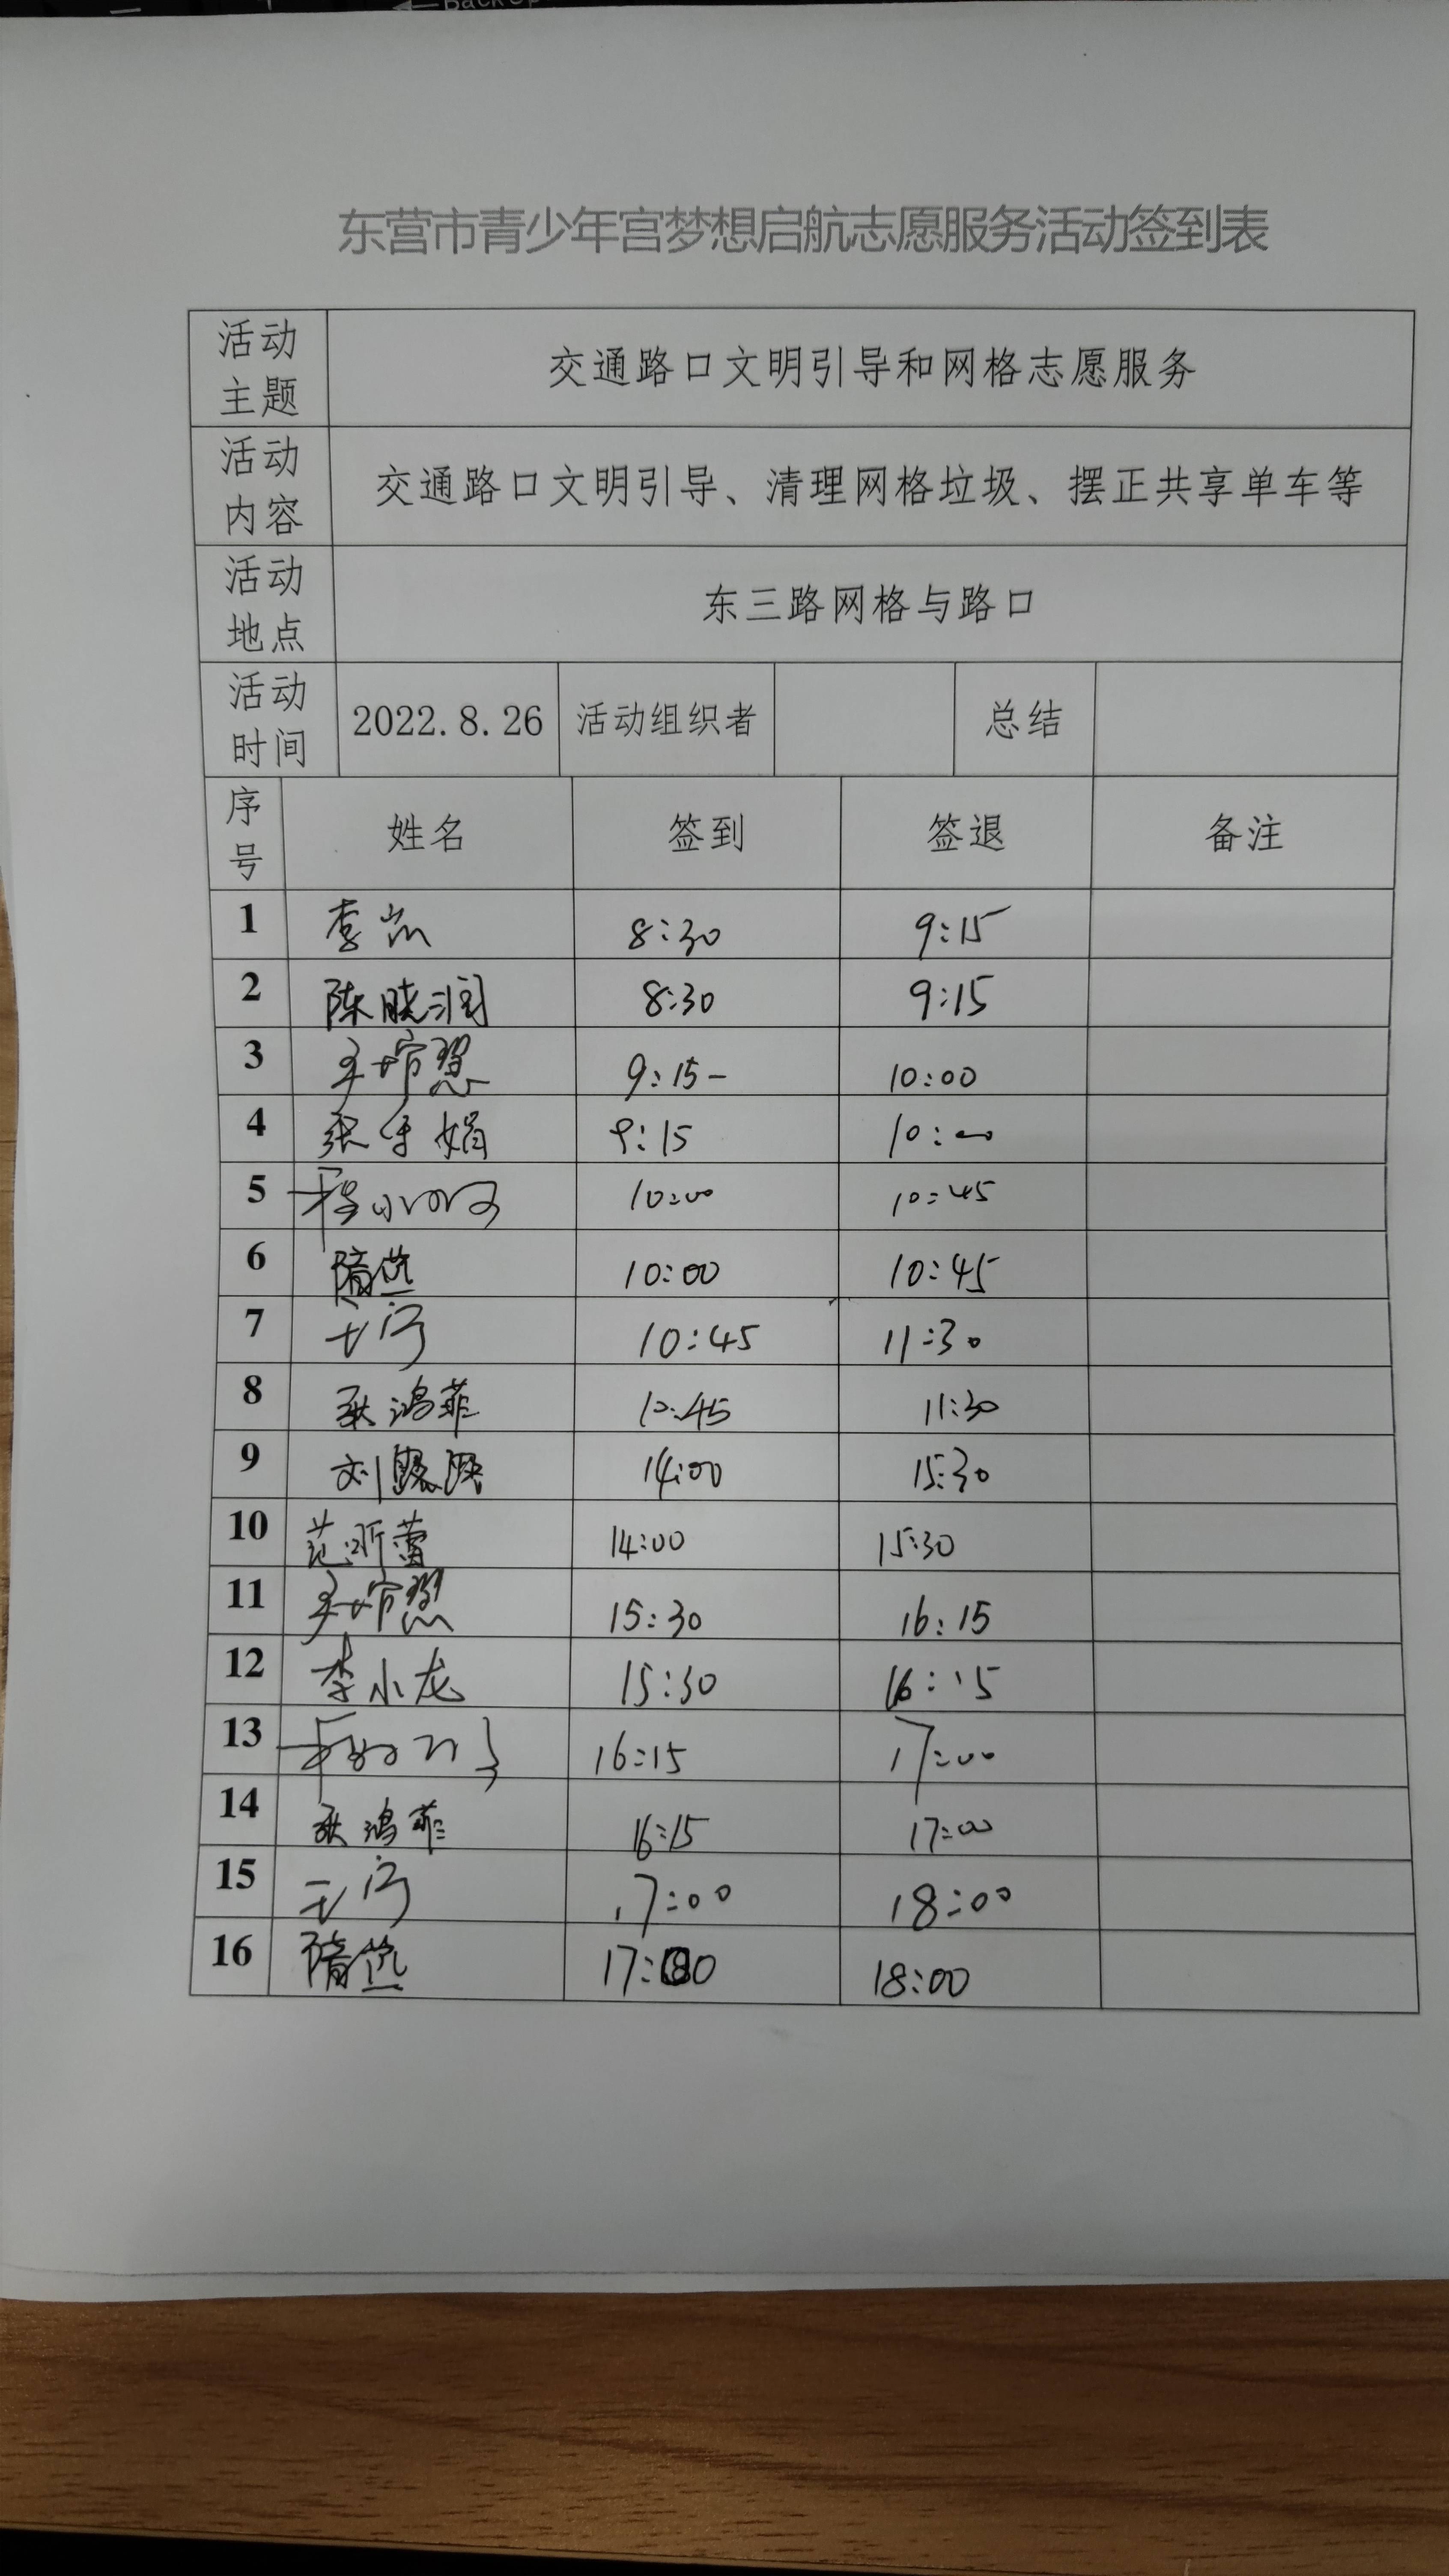 BackUp
东营市青少年宫梦想启航志愿服务活动签到表
活动主题 交通路口文明引导和网格志愿服务
活动内容 交通路口文明引导、清理网格垃圾、摆正共享单车等
活动地点 东三路网格与路口
活动时间 2022.8.26 活动组织者 总结
序号 姓名 签到 签退 备注
1 李 8:30 9:15
2 陈晓润 8:30 9:15
3 9:15- 10:00
4 张 娟 9:15 10:00
5 10:00 10:45
6 隋燕 10:00 10:45
7 10:45 11:30
8 耿鸿菲 10:45 11:30
9 刘 14:00 15:30
10 范昕蕾 14:00 15:30
11 15:30 16:15
12 李小龙 15:30 16:15
13 16:15 17:00
14 耿鸿菲 16:15 17:00
15 17:00 18:00
16 隋燕 17:00 18:00